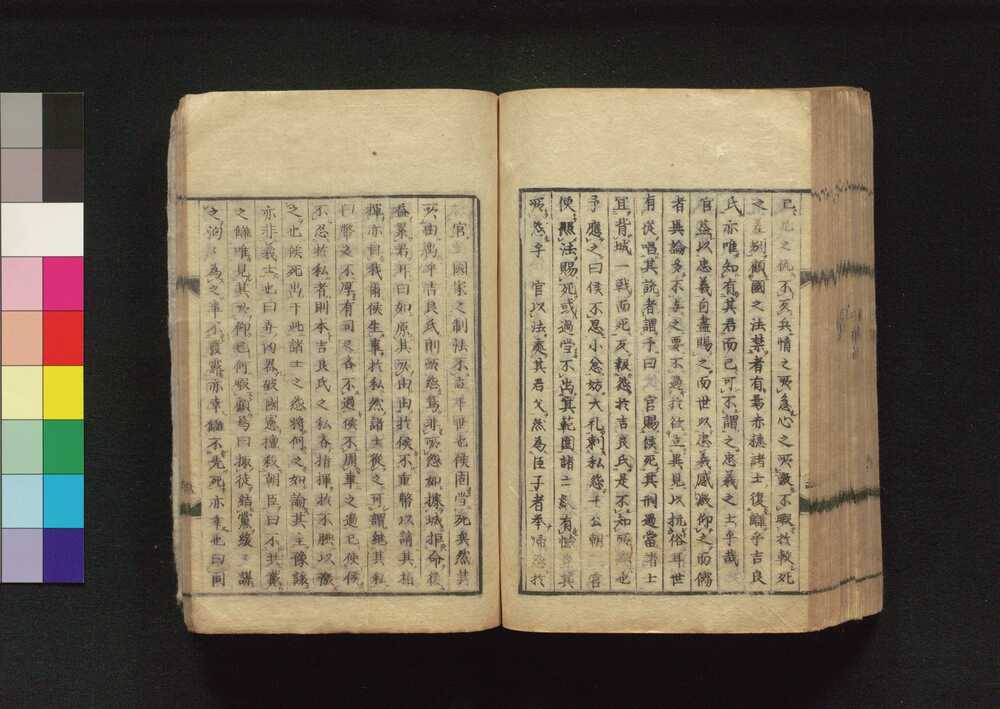 已死之仇不亥兵情之所急心之所激不暇於較死
之差別顧國之法禁者有焉赤穂諸士復讎乎吉良
氏亦唯知有其君而已可不謂之忠義之士乎哉
官益以忠義自盡賜之而世以忠義感激仰之而儒
者異論多不辜之要不過於欲立異見以抗俗耳世
有從唱其説者謂予曰 官賜侯死其刑過當諸士
宜背城一戰而死反報怨於吉良氏是不知所也
予應之曰侯不忍小忿妨大礼刺私怨于公朝 官
使照法賜死或過當不出其範圍諸士有其
所怨乎 官以法處其君父然為臣子者奉怨於
官 國家之制法不當世也侯固當死矣然其
所由出乎吉良氏則所怨焉非所怨如據城拒命後
益累君耶曰如原其所由由於侯不重幣以請其指
揮亦自我爾侯生事於私然諸士從之可謂継其私
曰幣之不厚有司之吝不過侯不周事之過已使侯
不忍於私者則本吉良氏之私吝指揮於不腆以辱
之也侯死出于此諸士之怨將何之如論其主豫讓
亦非義士也曰奔内君破國憲擅殺朝臣曰不共戴
之讎唯見其所仰已何暇顧焉曰諏徒結黨緩謀
之洶為之事不發露亦幸讎不先死亦幸也曰同